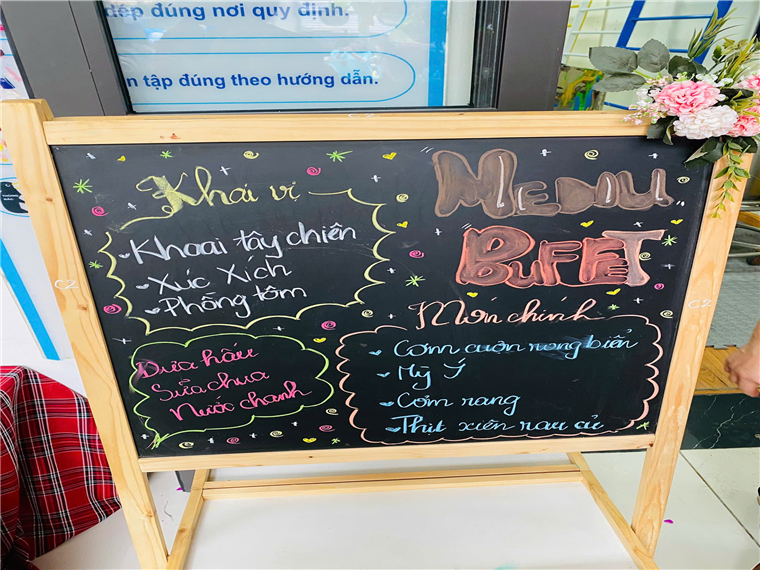 đếp đúng nơi quy định.
n tập đúng theo hướng dẫn.
MENU
BUFFET
Khai vị
- Khoai tây chiên
- Xúc Xích
- Phồng tôm
Dưa hấu
Sữa chua
Nước chanh
Món chính
- Cơm cuộn rong biển
- Mỳ Ý
- Cơm rang
- Thịt xiên rau củ
C2
C2